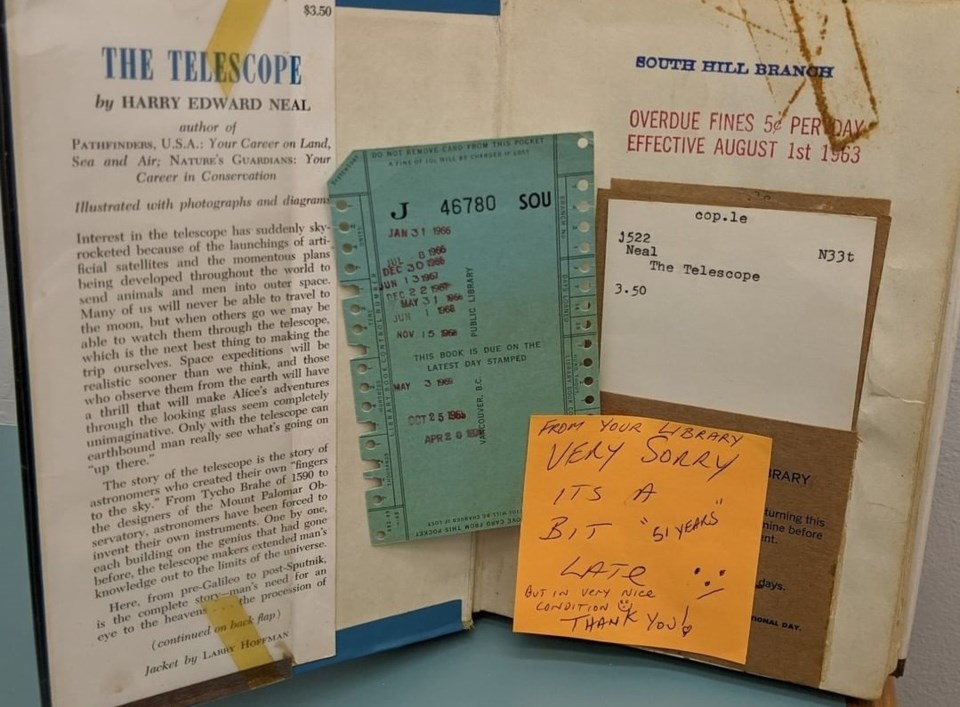 $3.50
THE TELESCOPE
by HARRY EDWARD NEAL
author of
PATHFINDERS, U.S.A.: Your Career on Land,
Sea and Air; NATURE'S GUARDIANS: Your
Career in Conservation
Illustrated with photographs and diagrams
Interest in the telescope has suddenly sky-
rocketed because of the launchings of arti-
ficial satellites and the momentous plans
being developed throughout the world to
send animals and men into outer space.
Many of us will never be able to travel to
the moon, but when others go we may be
able to watch them through the telescope,
which is the next best thing to making the
trip ourselves. Space expeditions will be
realistic sooner than we think, and those
who observe them from the earth will have
a thrill that will make Alice's adventures
through the looking glass seem completely
unimaginative. Only with the telescope can
earthbound man really see what's going on
"up there."
The story of the telescope is the story of
astronomers who created their own "fingers
to the sky." From Tycho Brahe of 1590 to
the designers of the Mount Palomar Ob-
servatory, astronomers have been forced to
invent their own instruments. One by one,
each building on the genius that had gone
before, the telescope makers extended man's
knowledge out to the limits of the universe.
Here, from pre-Galileo to post-Sputnik,
is the complete story—man's need for an
eye to the heavens the procession of
(continued on back flap)
Jacket by LARRY HOFFMAN
DO NOT REMOVE CARD FROM THIS POCKET
A FINE OF 10¢ WILL BE CHARGED IF LOST
J 46780 SOU
JAN 31 1966
JUL 8 1966
DEC 30 1966
JUN 13 1967
DEC 22 1967
MAY 31 1968
JUN 1 1968
NOV 15 1968
PUBLIC LIBRARY
THIS BOOK IS DUE ON THE
LATEST DAY STAMPED
MAY 3 1965
OCT 25 1965
APR 20
VANCOUVER, B.C.
LIBRARY BOOK CONTROL NUMBER
SOUTH HILL BRANCH
OVERDUE FINES 5¢ PER DAY
EFFECTIVE AUGUST 1st 1963
cop.le
J522 N33t
Neal
The Telescope
3.50
FROM YOUR LIBRARY
VERY SORRY
ITS A
BIT "51 YEARS"
LATE
BUT IN VERY NICE
CONDITION
THANK YOU!
BRARY
turning this
nine before
ent.
days.
IONAL DAY.